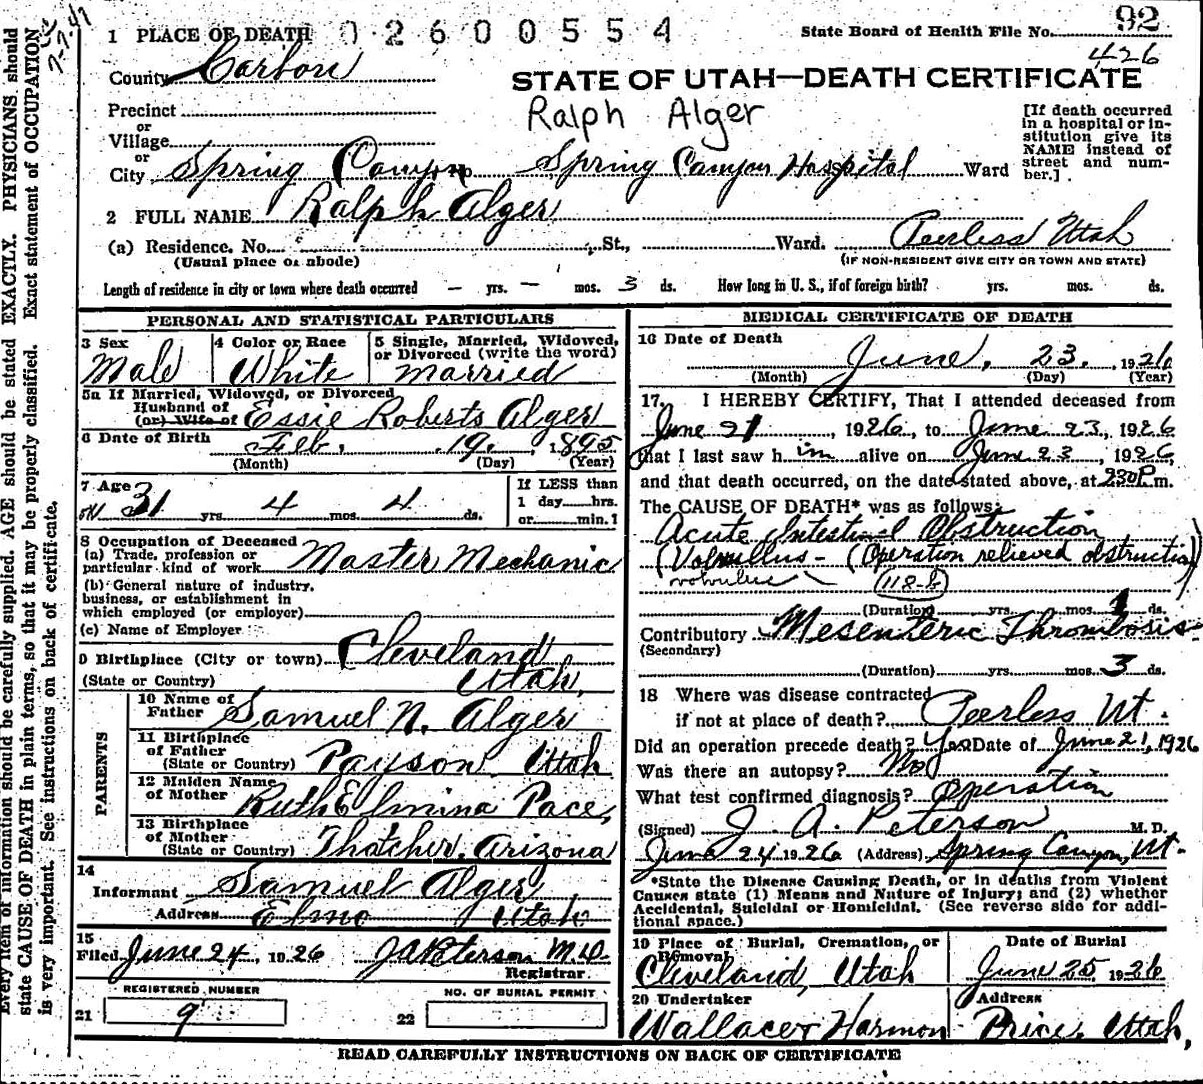 7-7-47
02600554
State Board of Health File No. 92
426
1 PLACE OF DEATH
County Carbon
STATE OF UTAH—DEATH CERTIFICATE
Ralph Alger
Precinct
or
Village
or
City Spring Canyon Spring Canyon Hospital Ward
[If death occurred
in a hospital or in-
stitution give its
NAME instead of
street and num-
ber.]
2 FULL NAME Ralph Alger
(a) Residence. No. St., Ward. Peerless Utah
(Usual place of abode) (IF NON-RESIDENT GIVE CITY OR TOWN AND STATE)
Length of residence in city or town where death occurred — yrs. — mos. 3 ds. How long in U. S., if of foreign birth? yrs. mos. ds.
PERSONAL AND STATISTICAL PARTICULARS
3 Sex
Male
4 Color or Race
White
5 Single, Married, Widowed,
or Divorced (write the word)
Married
5a If Married, Widowed, or Divorced
Husband of
(or) Wife of Essie Roberts Alger
6 Date of Birth Feb. 19, 1895
(Month) (Day) (Year)
7 Age
31 yrs. 4 mos. 4 ds.
If LESS than
1 day hrs.
or min.?
8 Occupation of Deceased
(a) Trade, profession or
particular kind of work Master Mechanic
(b) General nature of industry,
business, or establishment in
which employed (or employer)
(c) Name of Employer
9 Birthplace (City or town) Cleveland
(State or Country) Utah,
PARENTS
10 Name of
Father Samuel N. Alger
11 Birthplace
of Father
(State or Country) Payson Utah
12 Maiden Name
of Mother Ruth Elmina Pace,
13 Birthplace
of Mother
(State or Country) Thatcher, Arizona
14
Informant Samuel Alger
Address Elmo Utah
15
Filed June 24, 1926 JA Peterson M.D.
Registrar
REGISTERED NUMBER
21 9
NO. OF BURIAL PERMIT
22
MEDICAL CERTIFICATE OF DEATH
16 Date of Death
June, 23, 1926
(Month) (Day) (Year)
17. I HEREBY CERTIFY, That I attended deceased from
June 21, 1926, to June 23, 1926
that I last saw him alive on June 23, 1926,
and that death occurred, on the date stated above, at 230 P.m.
The CAUSE OF DEATH* was as follows:
Acute Intestinal Obstruction
(Volvullus - (Operation relieved obstruction)
volvulus 118-b
(Duration) yrs. mos. 1 ds.
Contributory Mesenteric Thrombosis
(Secondary)
(Duration) yrs. mos. 3 ds.
18 Where was disease contracted
if not at place of death? Peerless Ut.
Did an operation precede death? Yes Date of June 21, 1926
Was there an autopsy? No
What test confirmed diagnosis? Operation
(Signed) J. A. Peterson M.D.
June 24 1926 (Address) Spring Canyon, Ut.
*State the Disease Causing Death, or in deaths from Violent
Causes state (1) Means and Nature of Injury; and (2) whether
Accidental, Suicidal or Homicidal. (See reverse side for addi-
tional space.)
19 Place of Burial, Cremation, or
Removal
Cleveland, Utah
Date of Burial
June 25 1926
20 Undertaker
Wallace & Harmon
Address
Price, Utah,
READ CAREFULLY INSTRUCTIONS ON BACK OF CERTIFICATE
Every item of information should be carefully supplied. AGE should be stated EXACTLY. PHYSICIANS should
state CAUSE OF DEATH in plain terms, so that it may be properly classified. Exact statement of OCCUPATION
is very important. See instructions on back of certificate.